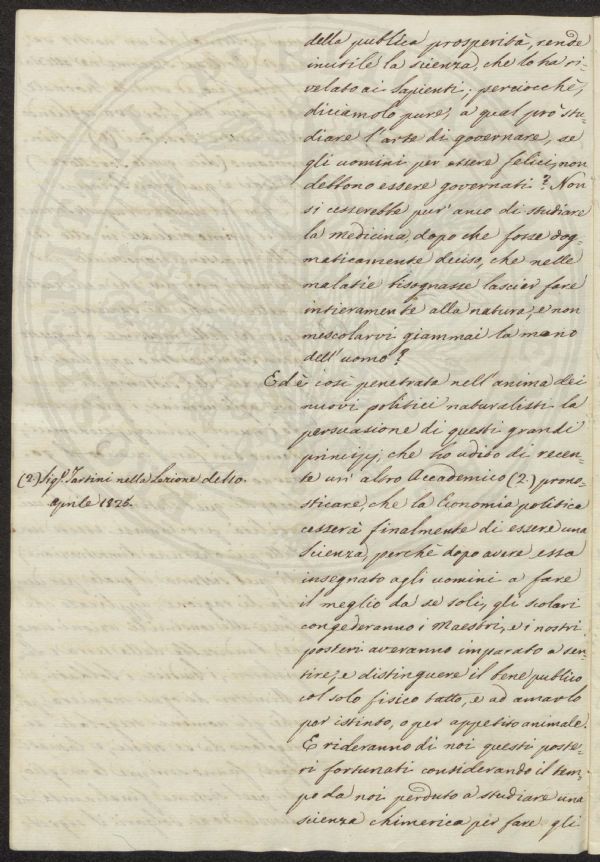 della publica prosperità, rende
inutile la scienza, che lo ha ri=
velato ai Sapienti; perciocchè,
diciamolo pure, a qual prò stu=
diare l'arte di governare, se
gli uomini per essere felici, non
debbono essere governati? Non
si cesserebbe pur'anco di studiare
la medicina, dopo che forse dog=
maticamente deciso, che nelle
malatie bisognasse lascier fare
intieramente alla natura, e non
mescolarvi giammai la mano
dell'uomo?
Ed è così penetrata nell'anima dei
nuovi politici naturalisti la
persuasione di questi grandi
principj, che ho udito di recen=
te un'altro Accademico (2.) prono=
sticare, che la Economia politica
cesserà finalmente di essere una
Scienza, perchè dopo avere essa
insegnato agli uomini a fare
il meglio da se soli, gli scolari
congederanno i Maestri, e i nostri
posteri averanno imparato a sen=
tire, e distinguere il bene publico
col solo fisico tatto, e ad amarlo
per istinto, o per appetito animale.
E rideranno di noi questi poste=
ri fortunati considerando il tem=
po da noi perduto a studiare una
scienza chimerica per fare gli
(2.) Sigr. Tartini nella Lezione del
Aprile 1826.